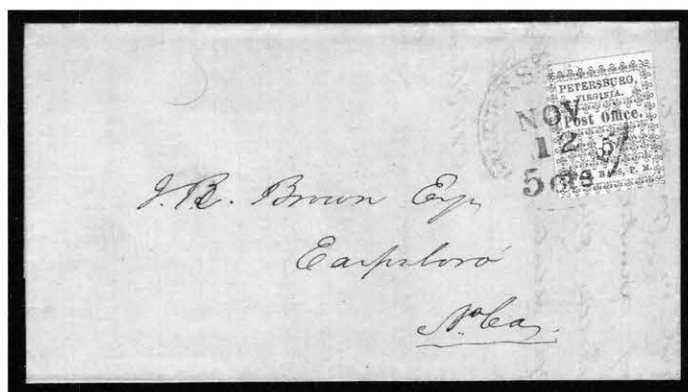 PETERSBURG,
VIRGINIA.
Post Office.
5
BASS, P. M.
NOV
12
5 cts
J. R. Brown Esq
Earpsboro'
No Ca.